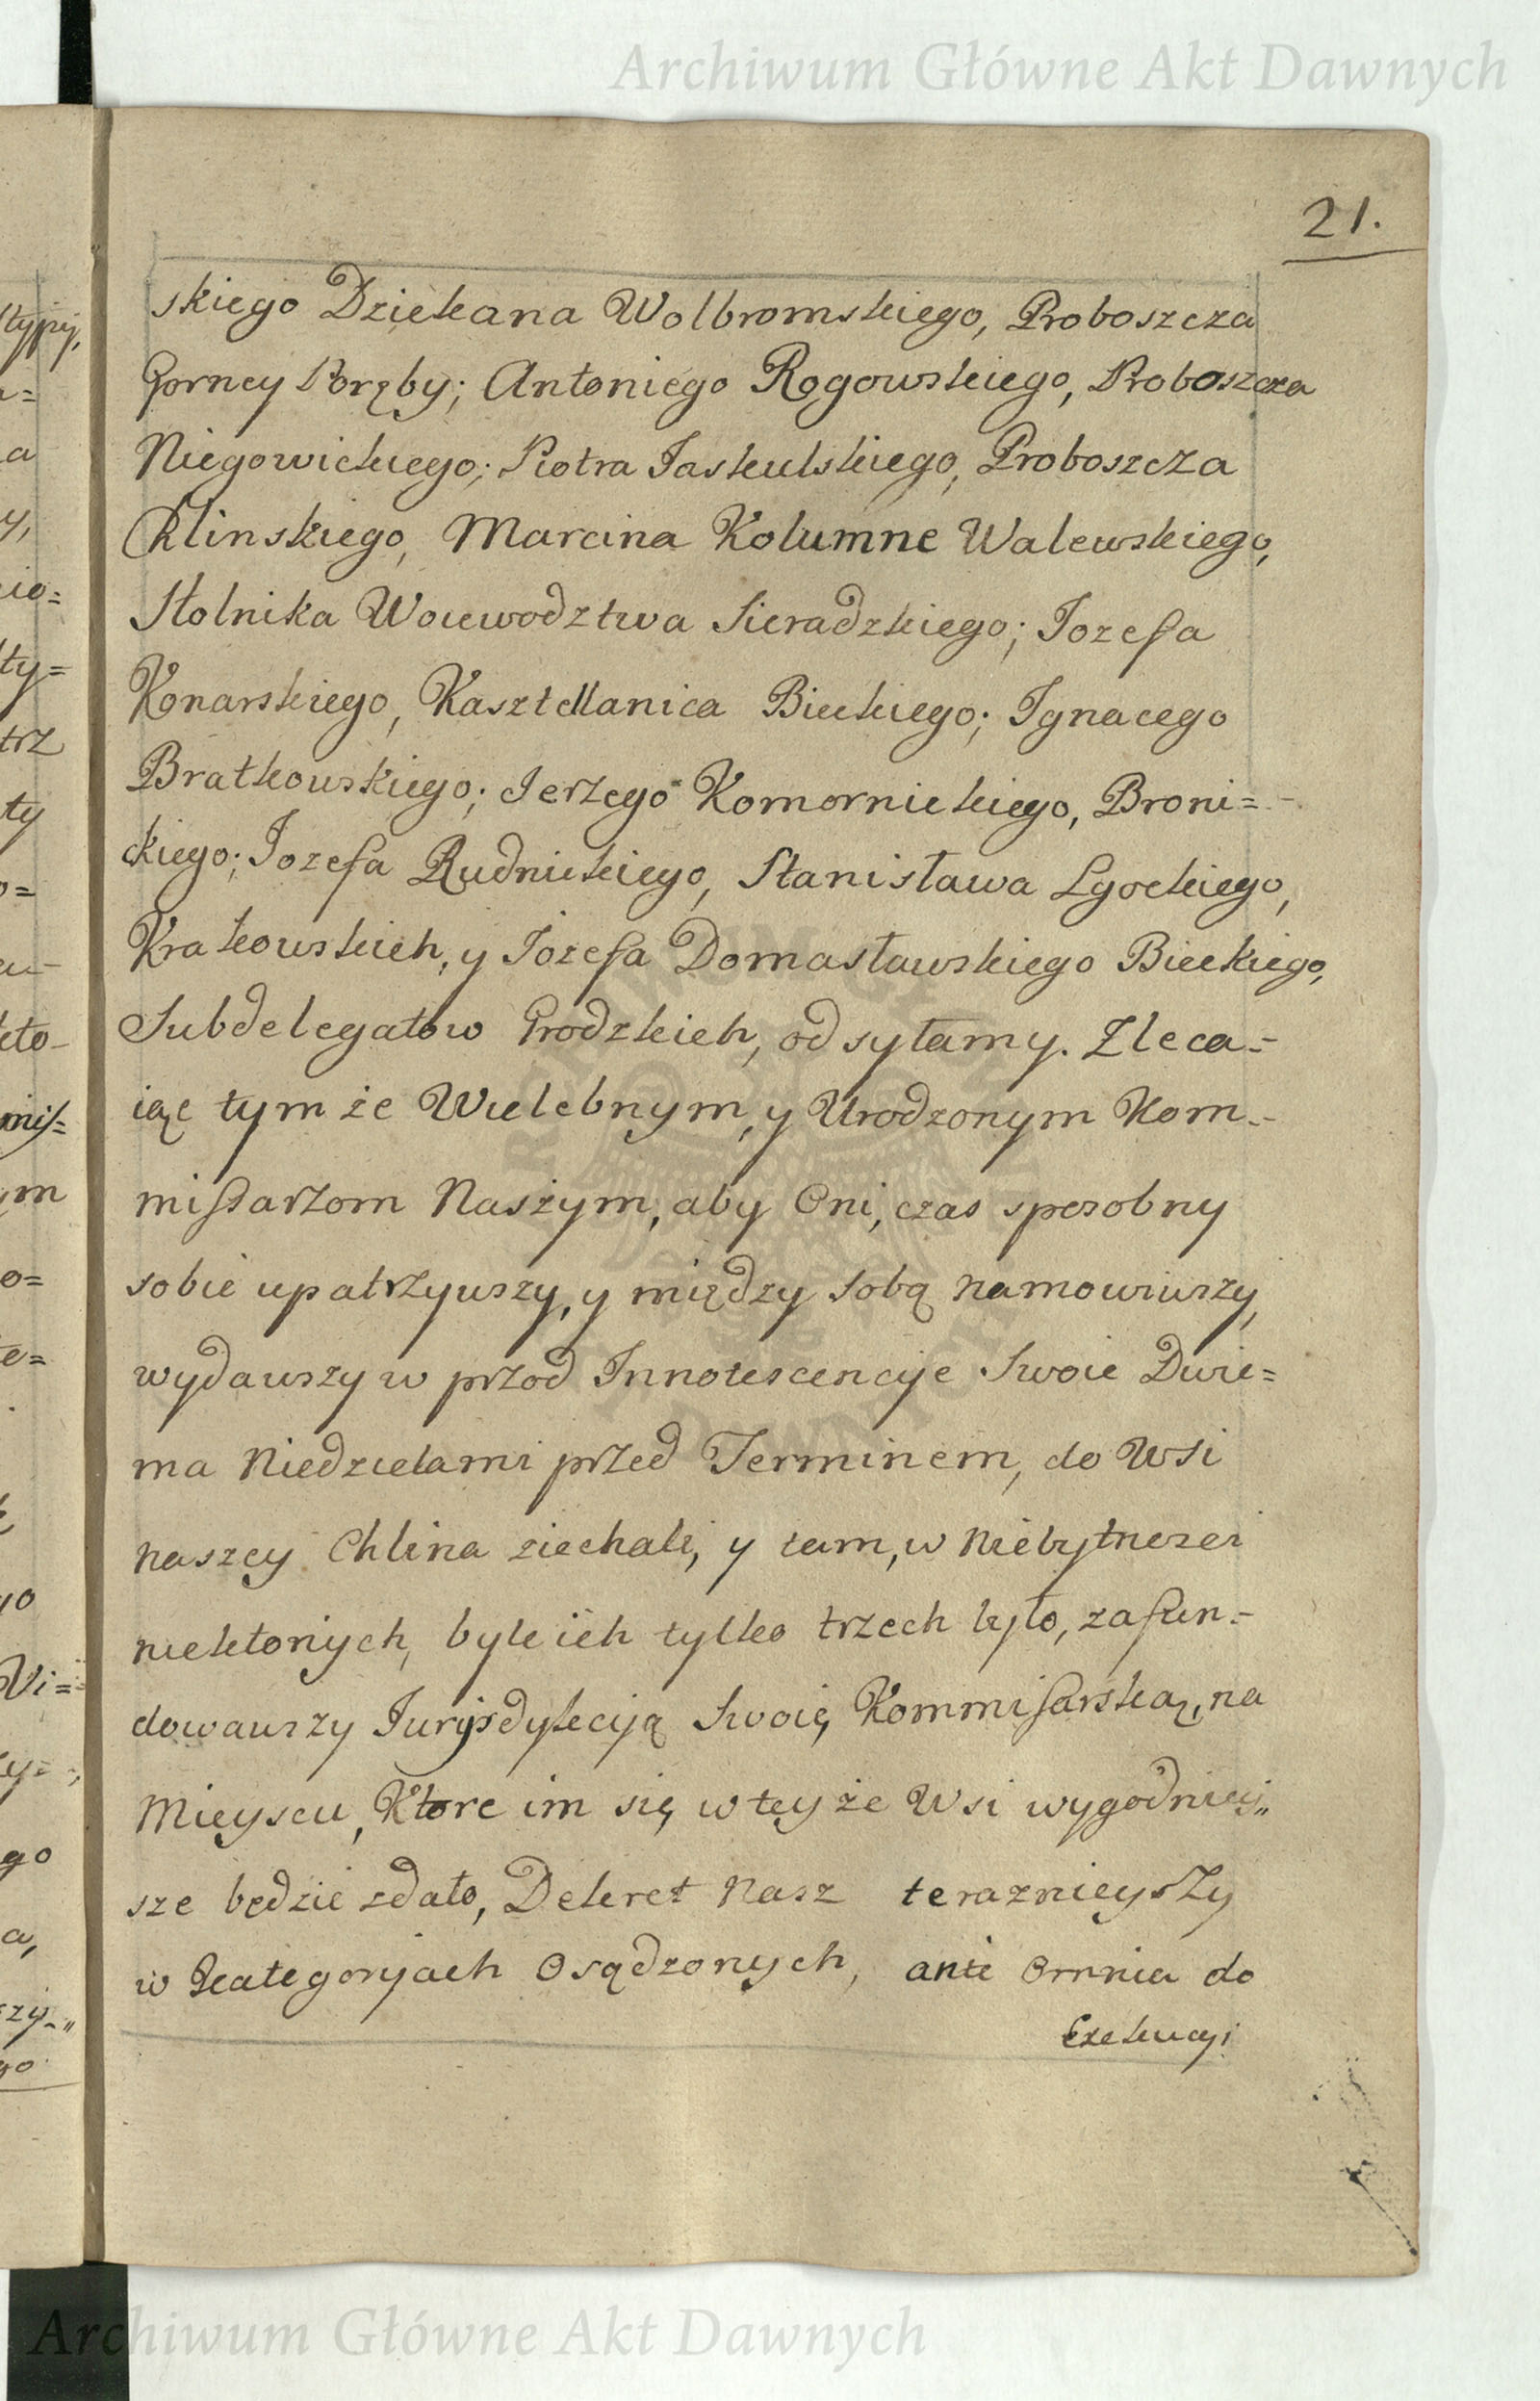 Archiwum Główne Akt Dawnych
21.
skiego Dziekana Wolbromskiego, Proboszcza
Gorney Poręby; Antoniego Rogowskiego, Proboszcza
Niegowickiego; Piotra Jaskulskiego, Proboszcza
Chlinskiego, Marcina Kolumne Walewskiego,
Stolnika Woiewodztwa Sieradzkiego; Jozefa
Konarskiego, Kasztellanica Bieckiego; Ignacego
Bratkowskiego; Jerzego Komornickiego, Broni=
ckiego; Jozefa Rudnickiego, Stanisława Lgockiego,
Krakowskich, y Jozefa Domasławskiego Bieckiego,
Subdelegatow Grodzkich, odsyłamy. Zleca=
iąc tym że Wielebnym, y Urodzonym Kom=
missarzom Naszym, aby Oni, czas sposobny
sobie upatrzywszy, y między sobą namowiwszy,
wydawszy w przod Innotescencye Swoie Dwie=
ma Niedzielami przed Terminem, do Wsi
naszey Chlina ziechali, y tam, w niebytnosci
niektorych, byle ich tylko trzech było, zafun=
dowawszy Jurysdykcyją Swoię Kommisarską, na
Mieyscu, Ktore im się w tey że Wsi wygodniey„
sze będzie zdało, Dekret Nasz teraznieyszy
w Kategoryjach Osądzonych, ante Omnia do
Exekucyi
Archiwum Główne Akt Dawnych